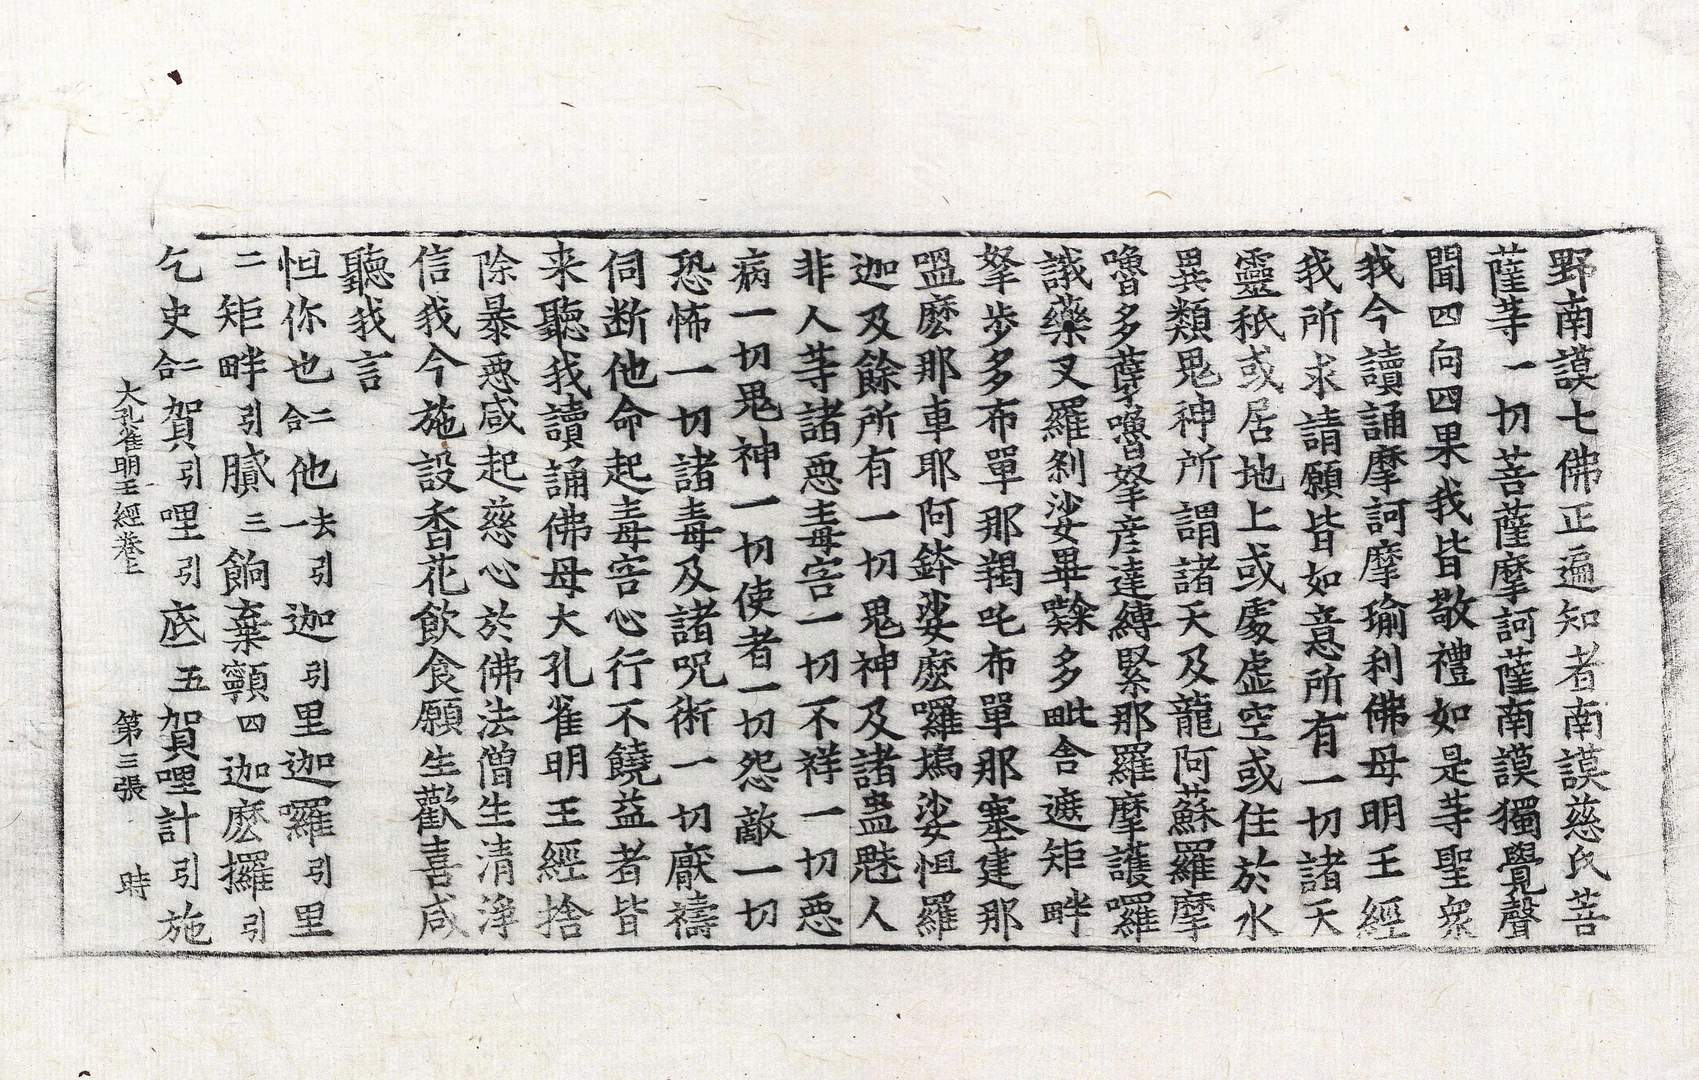 野南謨七佛正遍知者南謨慈氏菩
薩䓁一切菩薩摩訶薩南謨獨覺聲
聞四向四果我皆敬禮如是䓁聖衆
我今讀誦摩訶摩瑜利佛母明王經
我所求請願皆如意所有一切諸天
靈秖或居地上或處虛空或住於水
異類鬼神所謂諸天及龍阿蘇羅摩
嚕多蘖嚕拏彦達縛緊那羅摩護囉
誐藥叉羅剎娑畢㘑多毗舍遮矩畔
拏步多布單那羯吒布單那塞建那
嗢麽那車耶阿鉢娑麽囉塢娑怛羅
迦及餘所有一切鬼神及諸蠱魅人
非人䓁諸惡毒害一切不祥一切惡
病一切鬼神一切使者一切怨敵一切
恐怖一切諸毒及諸呪術一切厭禱
伺断他命起毒害心行不饒益者皆
来聽我讀誦佛母大孔雀明王經捨
除暴惡咸起慈心於佛法僧生清淨
信我今施設香花飲食願生歡喜咸
聽我言
怛你也二合他去引一迦引里迦囉引里
二矩畔引膩三餉棄顰四迦麽攞引
乞史二合賀引哩引底五賀哩計引施
大孔雀明王經卷上 第三張 時